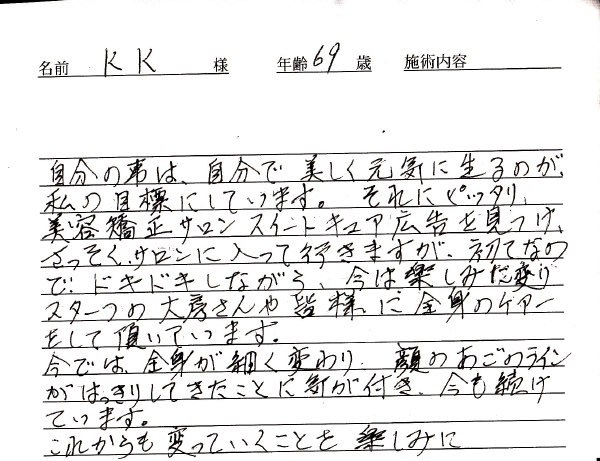 名前 KK 様 年齢 69 歳 施術内容
自分の事は、自分で 美しく元気に生るのが、
私の目標にしています。 それにピッタリ、
美容矯正サロン スイートキュア広告を見つけ、
さっそく、サロンに入って行きますが、初てなの
で、ドキドキしながら、今は楽しみに変り
スターフの大房さんや皆様に全身のケアー
をして頂いています。
今では、全身が細く変わり、顔のあごのライン
がはっきりしてきたことに気が付き、今も続け
ています。
これからも変っていくことを楽しみに